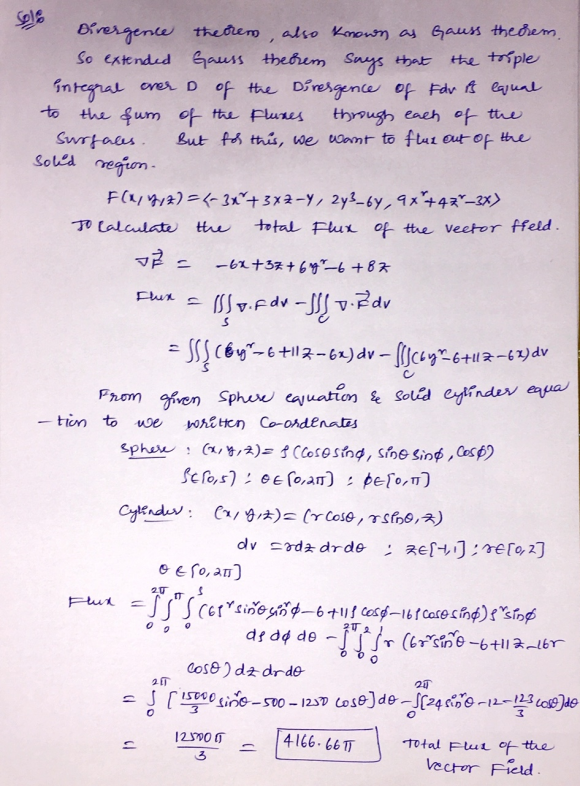 Sol:
Divergence theorem, also known as Gauss theorem.
So extended Gauss theorem says that the triple
integral over D of the Divergence of Fdv is equal
to the sum of the Fluxes through each of the
surfaces. But for this, we want to flux out of the
solid region.
F(x,y,z) = <-3x²+3xz-y, 2y³-6y, 9x²+4z²-3x>
To calculate the total Flux of the vector field.
∇F⃗ = -6x+3z+6y²-6+8z
Flux = ∭_S ∇.F dv - ∭_C ∇.F⃗ dv
= ∭_S (6y²-6+11z-6x) dv - ∭_C (6y²-6+11z-6x) dv
From given sphere equation & solid cylinder equa
-tion to we written co-ordenates
sphere : (x,y,z) = ρ(cosθ sinφ, sinθ sinφ, cosφ)
ρ∈[0,5] : θ∈[0,2π] : φ∈[0,π]
Cylinder : (x,y,z) = (r cosθ, r sinθ, z)
dv = rdz dr dθ ; z∈[-1,1] ; r∈[0,2]
θ∈[0,2π]
Flux = ∫₀^2π ∫₀^π ∫₀^5 (6ρ² sin²θ sin²φ-6+11ρ cosφ-16ρ cosθ sinφ) ρ² sinφ
dρ dφ dθ - ∫₀^2π ∫₀^2 ∫₀^1 r (6r² sin²θ-6+11z-16r
cosθ) dz dr dθ
= ∫₀^2π [15000/3 sin²θ-500-1250 cosθ] dθ - ∫₀^2π [24 sin²θ-12-123/3 cosθ] dθ
= 12500π/3 = 4166.66π Total Flux of the
Vector Field.